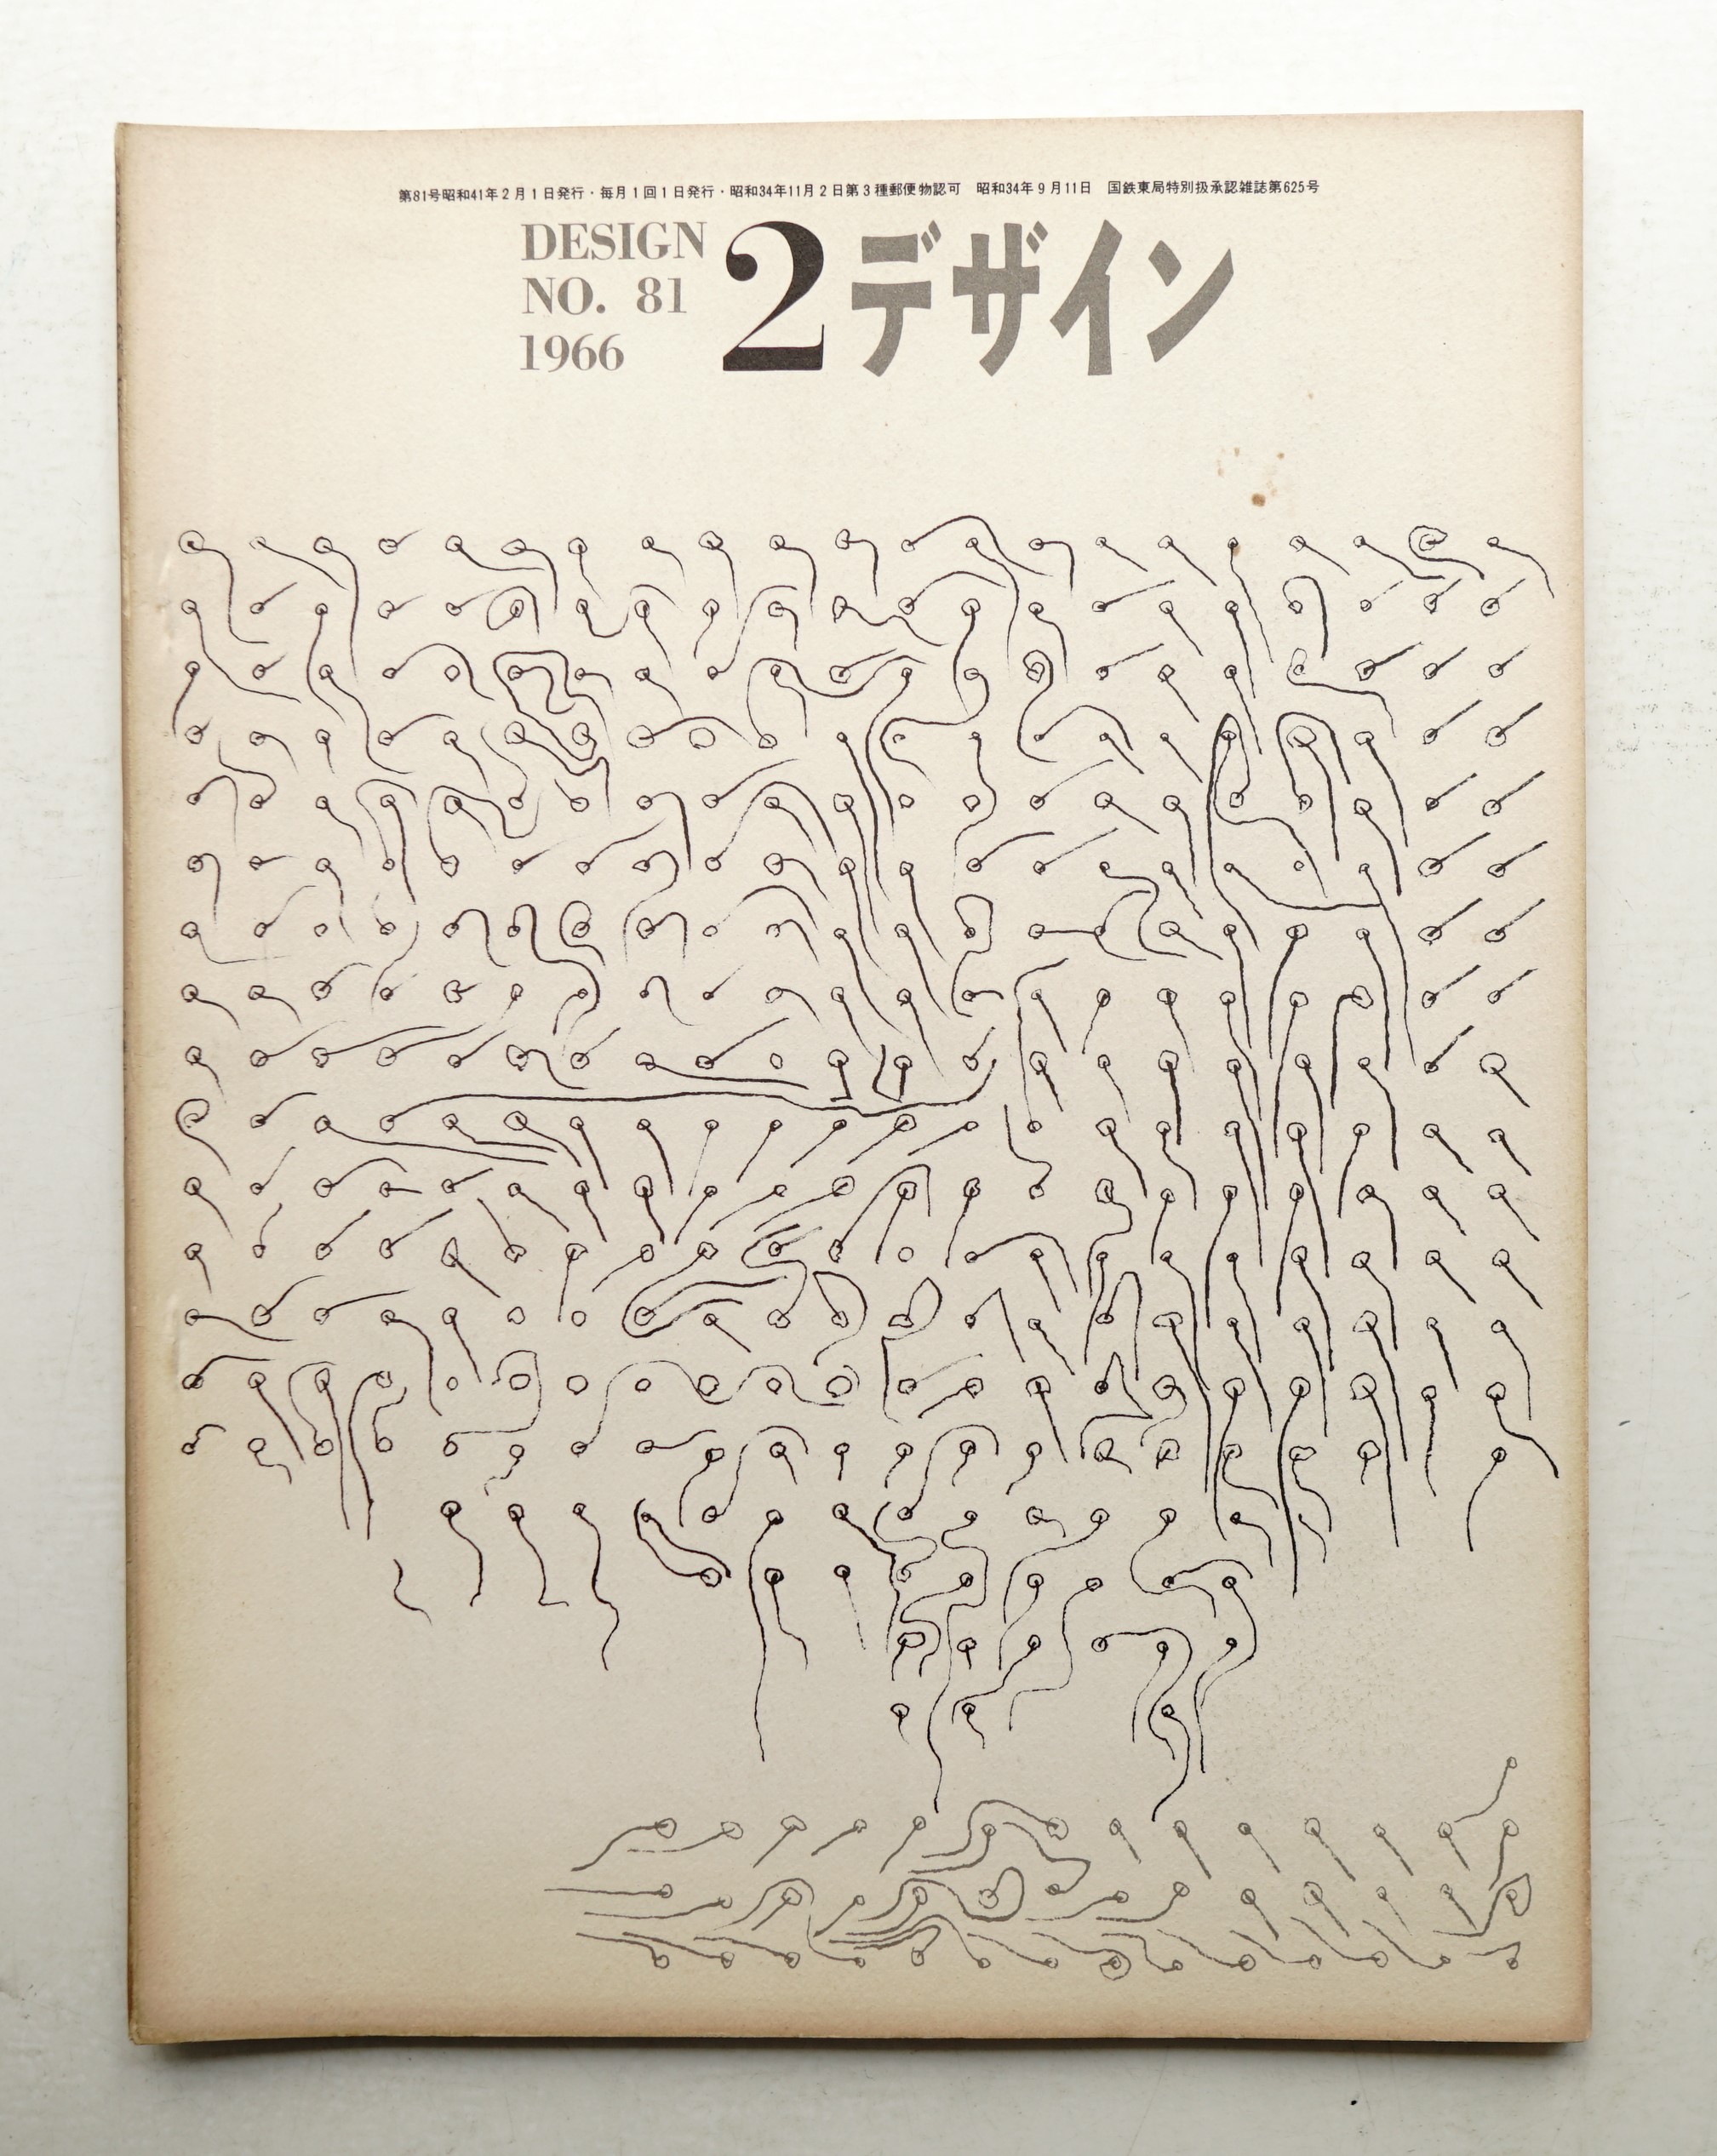 第81号昭和41年2月1日発行・毎月1回1日発行・昭和34年11月2日第3種郵便物認可　昭和34年9月11日　国鉄東局特別扱承認雑誌第625号
DESIGN
NO. 81
1966
2デザイン